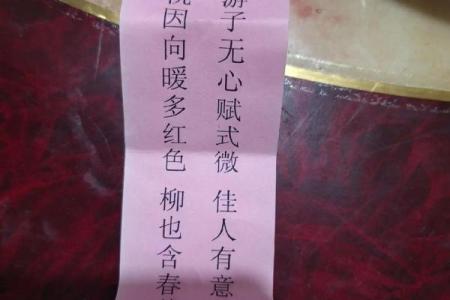 游子无心赋式微 佳人有意
因向暖多红色 柳也含春